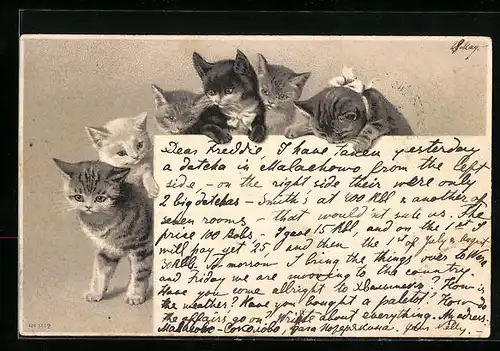 May.
Dear Freddie, I have taken yesterday
a datcha in Malachowo from the left
side - on the right side their were only
2 big datchas - Smith's at 400 Rbl & another of
seven rooms - that would'nt suite us. The
price 100 Robs - I gave 15 Rbl and on the 1st I
will pay yet 25 and then the 1st of July & August
30 Rbls. To-morrow I bring the things over to
and Friday we are mooving to the country.
Have you come allright to How is
the weather? Have you bought a paletot? How
the affairs go on? Write about everything. My adress:
Malachowo - Соколово, дача Yours Nelly.